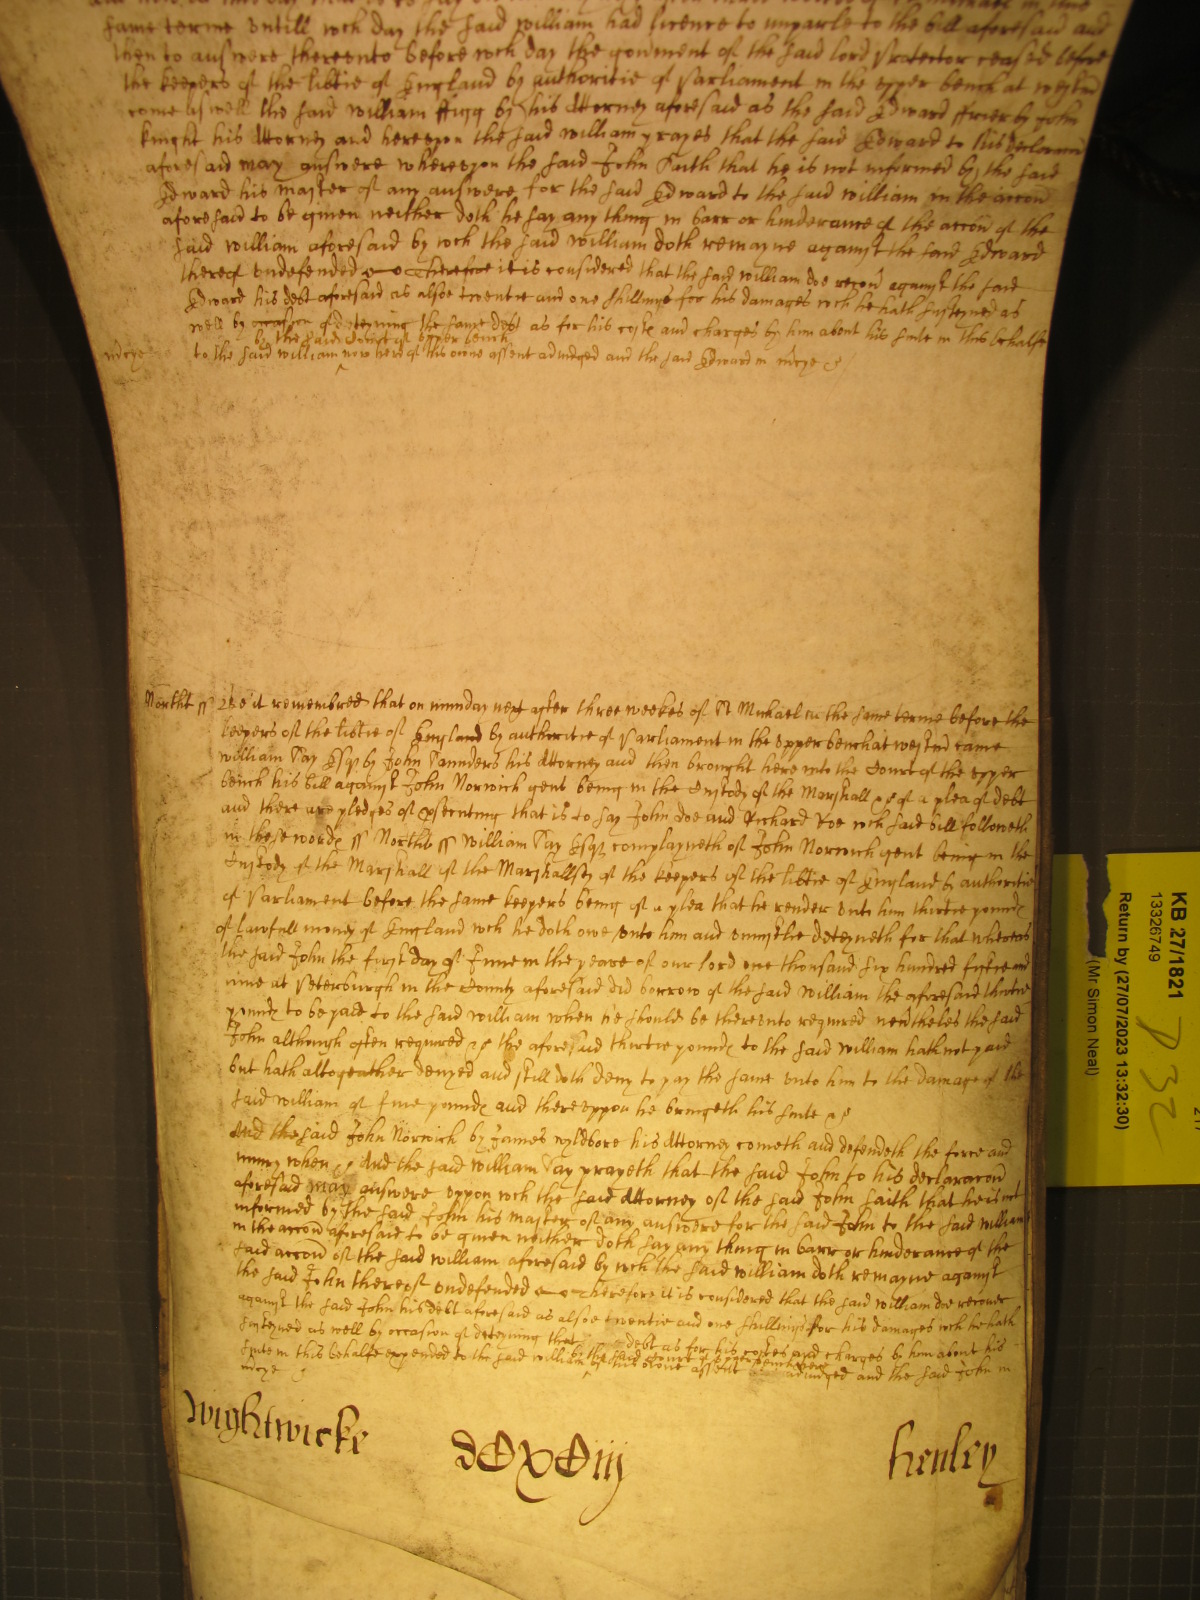 same terme untill wch day the said William had licence to imparle to the bill aforesaid and
then to answere thereunto before wch day the govment of the said lord Protector ceased before
the keepers of the libtie of England by authoritie of Parliament in the upper bench at Westm
come aswell the said William Figg by his Attorney aforesaid as the said Edward by John
Knight his Attorney and hereupon the said William prayes that the said Edward to his declaracon
aforesaid may answere whereupon the said John saith that he is not informed by the said
Edward his master of any answere for the said Edward to the said William in the accon
aforesaid to be given neither doth he say any thing in barr or hinderance of the accon of the
said William aforesaid by wch the said William doth remayne against the said Edward
thereof undefended Therefore it is considered that the said William doe recover against the said
Edward his debt aforesaid as alsoe twentie and one shillings for his damages wch he hath susteyned as
well by occasion of deteyning the same debt as for his costs and charges by him about his suite in this behalfe
by the said Court of upper bench
mcye to the said William now here of his owne assent adiudged and the said Edward in mcye &c
Northt ss Be it remembred that on munday next after three weekes of St Michael in the same terme before the
keepers of the libtie of England by authoritie of Parliament in the upper bench at Westm came
William Tay Esqr by John Saunders his Attorney and then brought here into the Court of the upper
bench his bill against John Norwich gent being in the Custody of the Marshall &c of a plea of debt
and there are pledges of psecuting that is to say John doe and Richard Roe wch said bill followeth
in these words ss Northt ss William Tay Esqr complayneth of John Norwich gent being in the
Custody of the Marshall of the Marshallsey of the keepers of the libtie of England by authoritie
of Parliament before the same keepers being of a plea that he render unto him thirtie pounds
of lawfull money of England wch he doth owe unto him and uniustlie deteyneth for that whereas
the said John the first day of June in the yeare of our lord one thousand six hundred fiftie and
nine at Peterburgh in the County aforesaid did borrow of the said William the aforesaid thirtie
pounds to be paid to the said William when he should be thereunto required nevtheles the said
John although often required &c the aforesaid thirtie pounds to the said William hath not paid
but hath altogeather denyed and still doth deny to pay the same unto him to the damage of the
said William of five pounds and thereuppon he bringeth his suite &c
And the said John Norwich by James Wyldbore his Attorney cometh and defendeth the force and
iniury when &c And the said William Tay prayeth that the said John to his declaracon
aforesaid may answere uppon wch the said Attorney of the said John saith that he is not
informed by the said John his master of any answere for the said John to the said William
in the accon aforesaid to be given neither doth say any thing in barr or hinderance of the
said accon of the said William aforesaid by wch the said William doth remayne against
the said John thereof undefended Therefore it is considered that the said William doe recover
against the said John his debt aforesaid as alsoe twentie and one shillings for his damages wch he hath
susteyned as well by occasion of deteyning that debt as for his costes and charges by him about his
suite in this behalfe expended to the said William by the said Court of upper bench here of his owne assent adiudged and the said John in
mcye &c
Wightwicke dCxCiij Henley
KB 27/1821
13326749
Return by (27/07/2023 13:32:30)
(Mr Simon Neal)